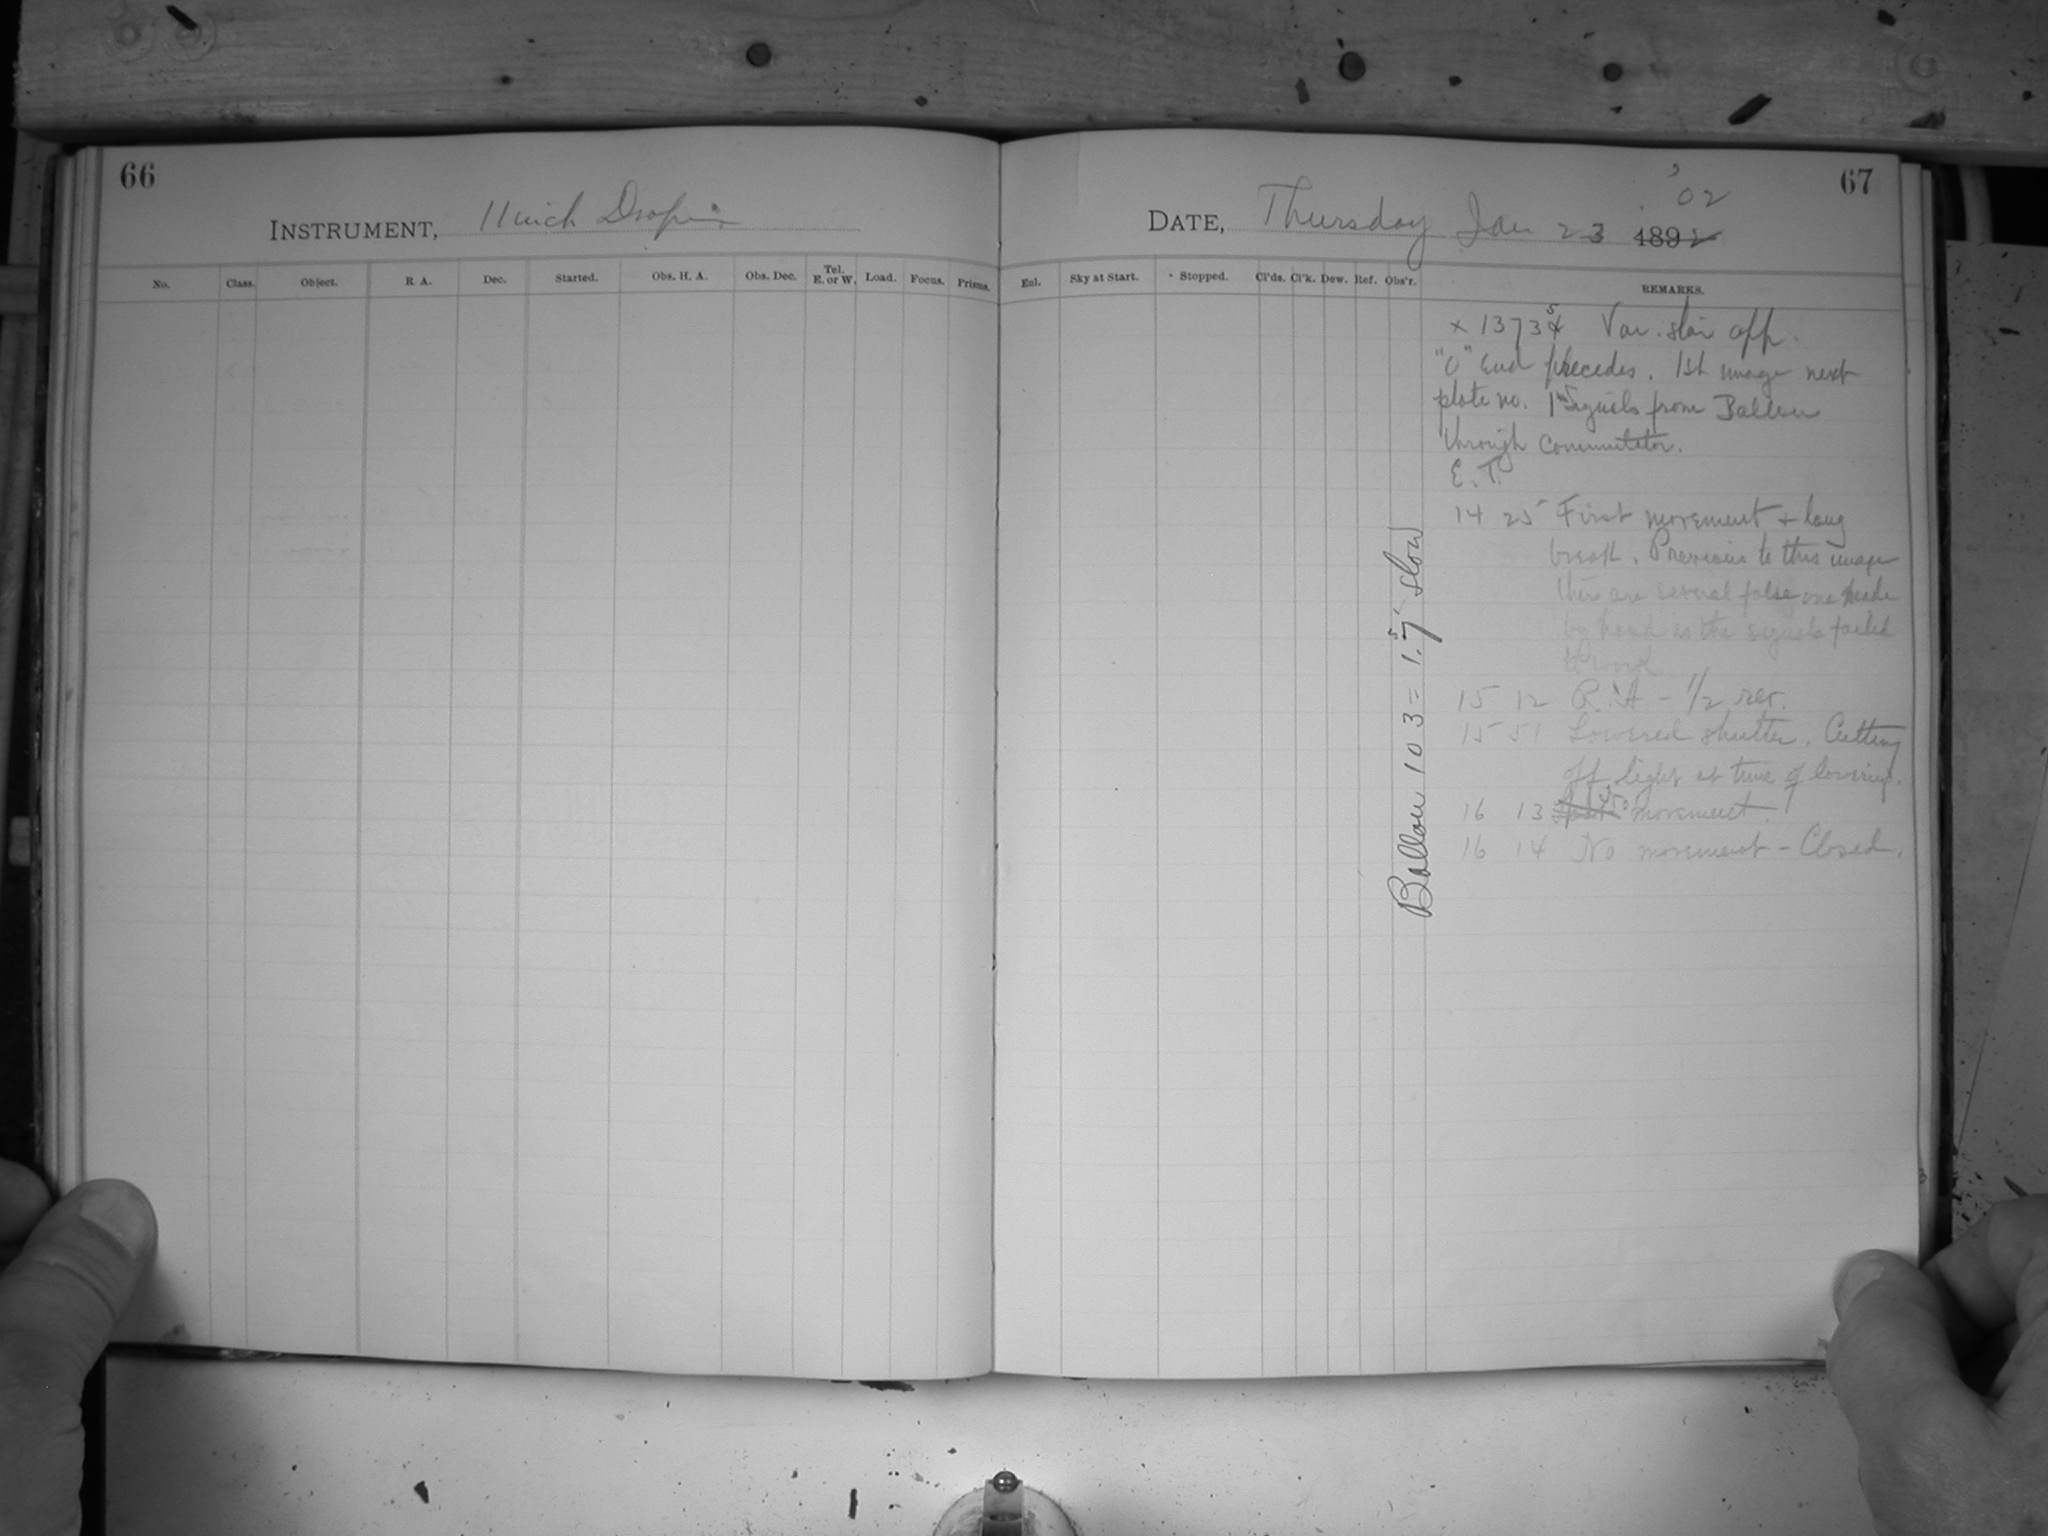 66
INSTRUMENT, 11 inch Draper
No. Class. Object. R A. Dec. Started. Obs. H. A. Obs. Dec. Tel. E. or W. Load. Focus. Prisms.
67
DATE, Thursday Jan 23 1892 '02
Eul. Sky at Start. Stopped. Cl'ds. Cl'k. Dew. Ref. Obs'r. REMARKS.
x 13734 5 Var. star app.
"O" End precedes. 1st image next
plate no. 1 Signals from Ballou
through Commutator.
E. T.
14 25 First movement + long
break. Previous to this image
there are several false one made
by hand as the signals failed
to work
15 12 R.A - 1/2 rev.
15 51 Lowered shutter. Cutting
off light at time of lowering.
16 13 movement.
16 14 No movement - Closed.
Ballou 103 = 1.7 5 slow